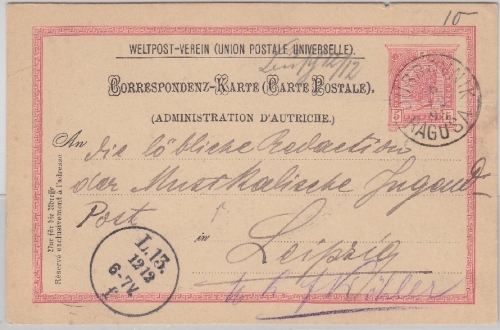 10
WELTPOST-VEREIN (UNION POSTALE UNIVERSELLE).
CORRESPONDENZ-KARTE (CARTE POSTALE).
(ADMINISTRATION D'AUTRICHE.)
RAGUSA
An die löbliche Redaction
der Musikalische Jugend
Post
in Leipzig
Nur für die Adresse
Réservé exclusivement à l'adresse
L.13.
12/12
6-7V.